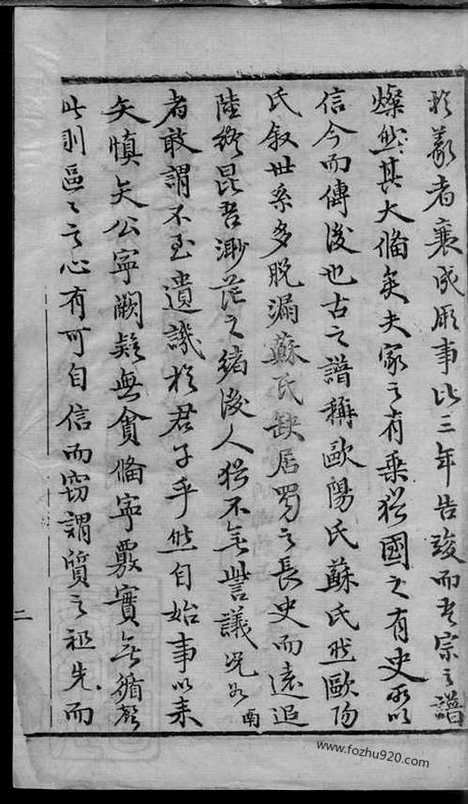 於義者襄成厥事比三年告竣而吾宗之譜
燦然其大備矣夫家之有乘猶國之有史所以
信今而傳後也古之譜稱歐陽氏蘇氏然歐陽
氏叙世系多脫漏蘇氏缺居蜀之長史而遠追
陸終昆吾渺茫之緒後人猶不無訾議況如南
者敢謂不至遺譏於君子乎然自始事以来
矢慎矢公寧闕疑無貪備寧覈實無循聲
此則區〻之心有可自信而窃謂質之祖先而
二
www.fozhu920.com